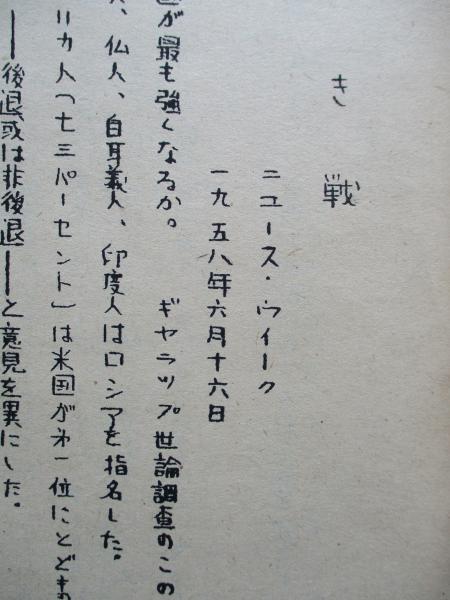 き戦
ニュース・ウイーク
一九五八年六月十六日
が最も強くなるか。 ギャラップ世論調査のこの
、仏人、白耳義人、印度人はロシアを指名した。
リカ人「七三パーセント」は米国が第一位にとどま
――後退或は非後退――と意見を異にした。